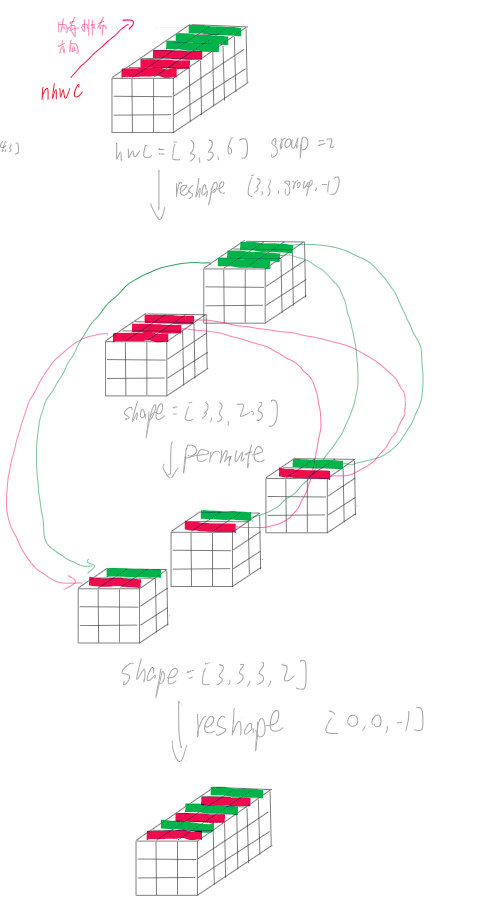 内存排布
方向
nhwc
4,3]
hwc=[3,3,6] group=2
reshape [3,3,group,-1]
shape=[3,3,2,3]
permute
shape=[3,3,3,2]
reshape [0,0,-1]